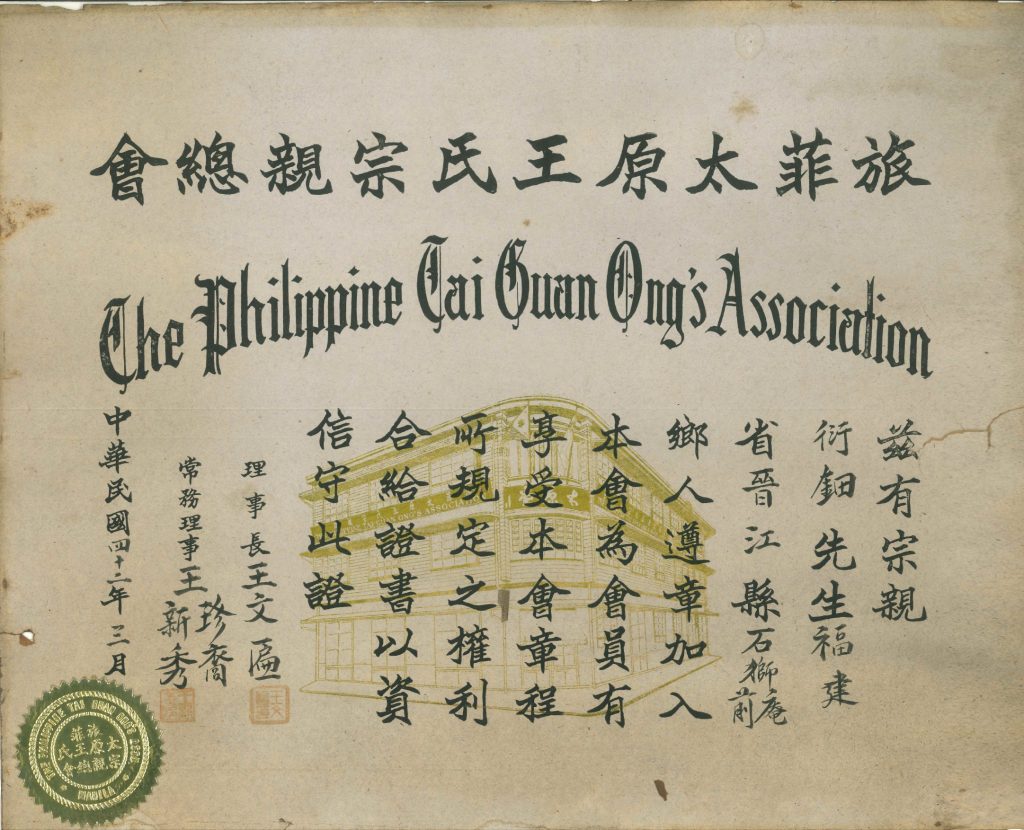 旅菲太原王氏宗親總會
The Philippine Tai Guan Ong's Association
茲有宗親
衍鈿先生福建
省晉江縣石獅庵前
鄉人遵章加入
本會為會員有
享受本會章程
所規定之權利
合給證書以資
信守此證
理事長王文匾
常務理事王珍裔
新秀
中華民國四十二年三月
THE PHILIPPINE TAI GUAN ONG'S ASSN.
旅菲
太原王氏
宗親總會
MANILA